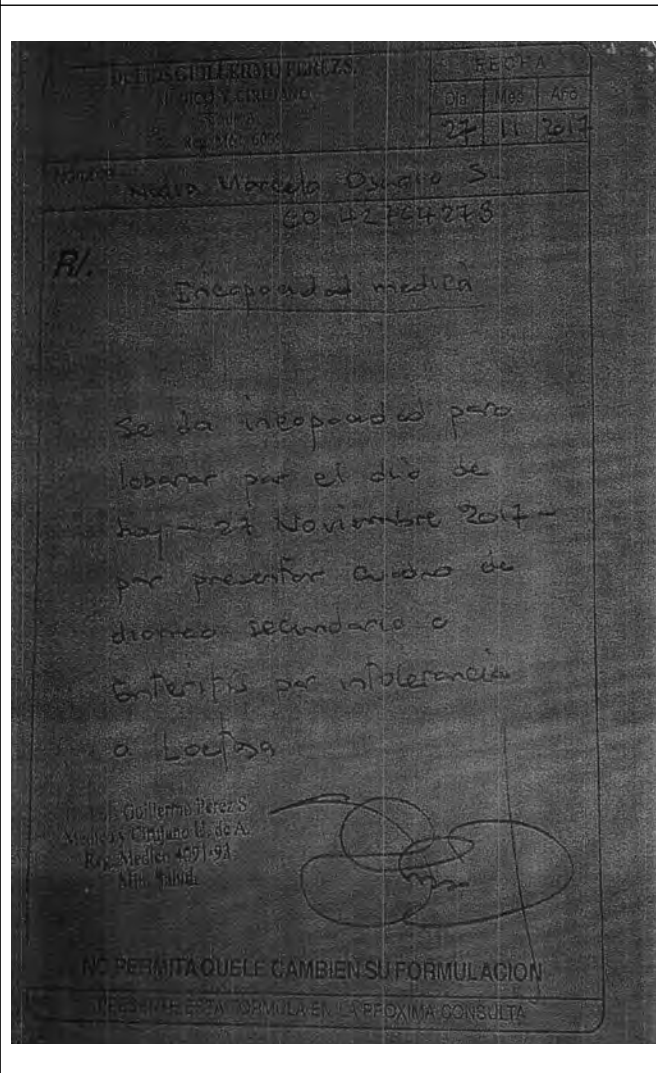 Dr. LUIS GUILLERMO PEREZ S.
MEDICO Y CIRUJANO
U. de A.
FECHA
Día Mes Año
27 11 2017
Nombre
Marcela S.
CC
R/.
Incapacidad medica
Se da incapacidad para
laborar por el día de
hoy - 27 Noviembre 2017 -
por presentar cuadro de
diarrea secundario a
Enteritis por intolerancia
a Lactosa
Luis Guillermo Pérez S.
Medico y Cirujano U. de A.
Reg. Medico 4091-93
Min. Salud
NO PERMITA QUE LE CAMBIEN SU FORMULACION
PRESENTE ESTA FORMULA EN LA PROXIMA CONSULTA